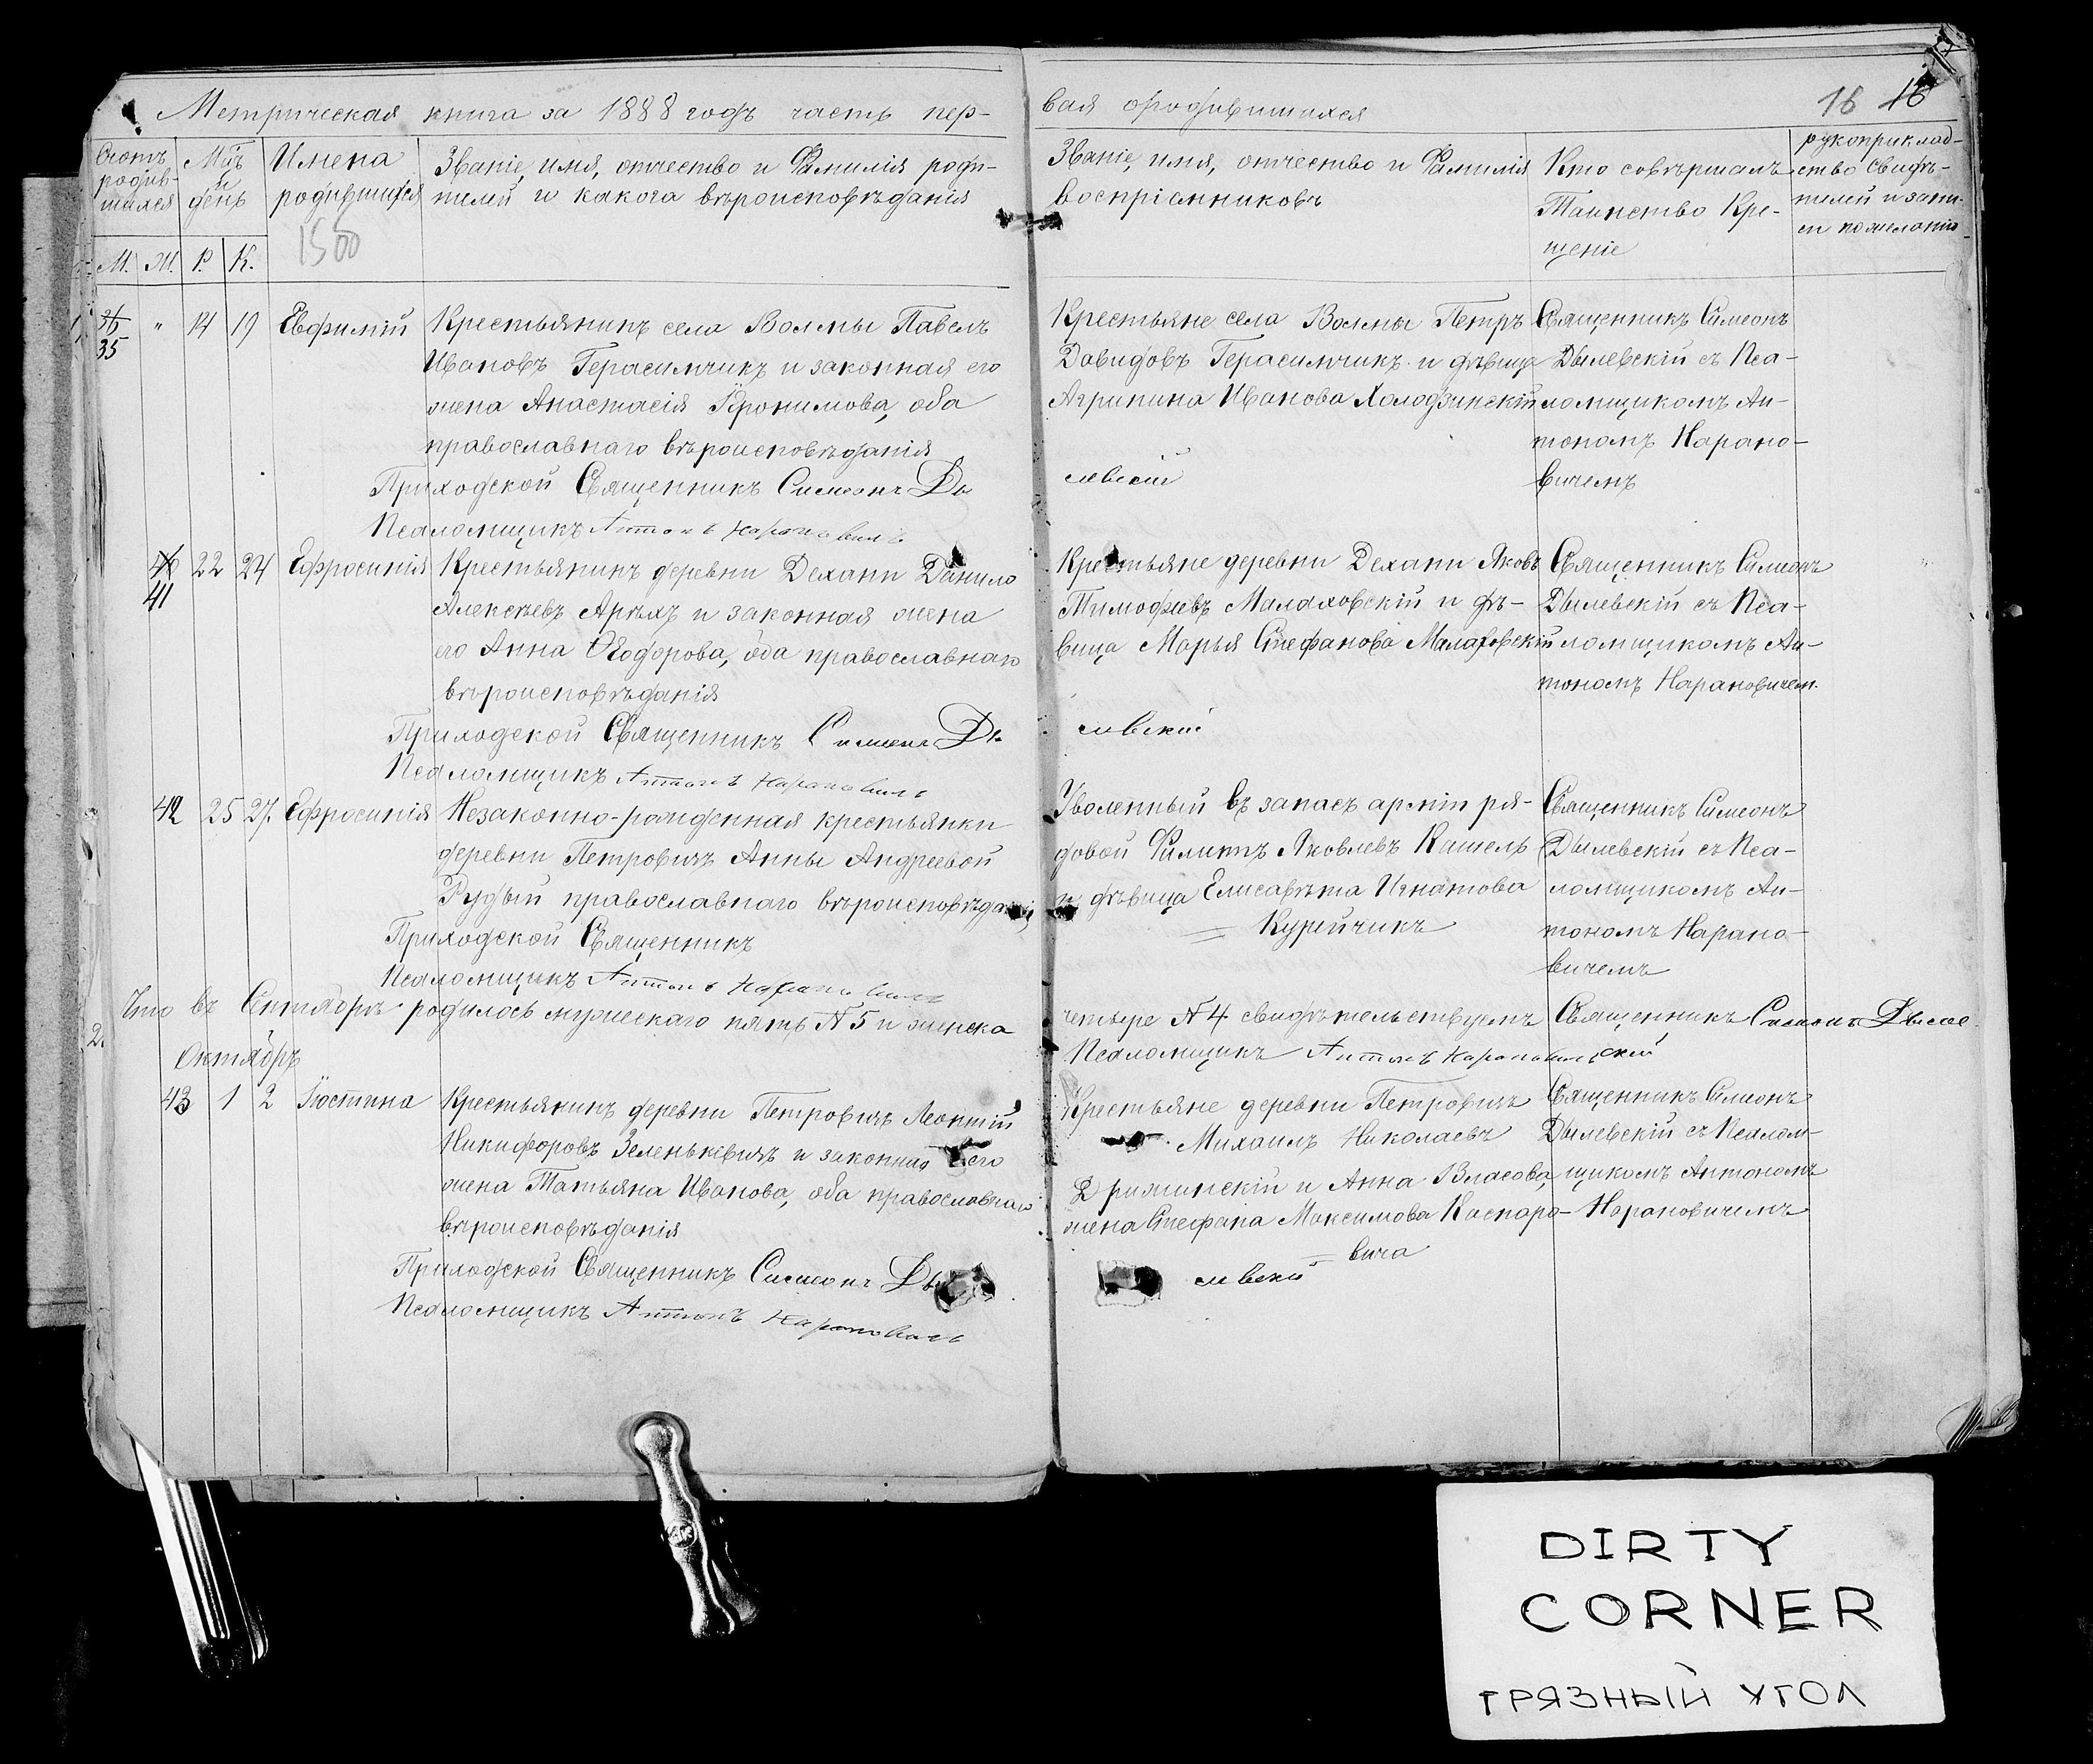 Метрическая книга за 1888 годъ часть пер-
вая о родившихся
16 16
Счотъ родив-шихся
Мцъ и день
Имена родившихся
Званіе, имя, отчество и Фамилія роди-
телей и какога вѣроисповѣданія
Званіе, имя, отчество и Фамилія
воспріемниковъ
Кто совѣршалъ
Таинство Кре-
щеніе
рукоприклад-
ство свидѣ-
телей и запи-
си по желанію
1500
М. Ж. Р. К.
36 " 14 19 Евфимій
35
Крестьянинъ села Волмы Павелъ
Ивановъ Герасимчикъ и законная его
жена Анастасія Іеронимова, оба
православнаго вѣроисповѣданія
Приходской Священникъ Симеонъ Ды
левскій
Псаломщикъ Антонъ Нарановичъ
Крестьяне села Волмы Петръ
Давидовъ Герасимчикъ и дѣвица
Агрипина Иванова Холодзинскій
Священникъ Симеонъ
Дылевскій съ Пса-
ломщикомъ Ан-
тономъ Нарано-
вичемъ
40 22 24 Ефросинія
41
Крестьянинъ деревни Дехани Данило
Алексѣевъ Арѣхъ и законная жена
его Анна Ѳеодорова, оба православнаго
вѣроисповѣданія
Приходской Священникъ Симеонъ Ды
левскій
Псаломщикъ Антонъ Нарановичъ
Крестьяне деревни Дехани Яковъ
Тимофиевъ Малаховскій и дѣ-
вица Марья Стефанова Малаховскій
Священникъ Симеонъ
Дылевскій съ Пса-
ломщикомъ Ан-
тономъ Нарановичем.
42 25 27. Ефросинія
Незаконно-рожденная крестьянки
деревни Петровичъ Анны Андреевой
Рудый православнаго вѣроисповѣданія
Приходской Священникъ
Псаломщикъ Антонъ Нарановичъ
Уволенный въ запасъ арміи ря-
довой Филипъ Яковлевъ Кашель
и дѣвица Елисавѣта Игнатова
Курійчикъ
Священникъ Симеонъ
Дылевскій съ Пса-
ломщикомъ Ан-
тономъ Нарано-
вичемъ
Что въ Сентябрѣ родилось мужескаго пять №5 и женска
четыре №4 свидѣтельствуемъ Священникъ Симеонъ Дылев
скій
Псаломщикъ Антонъ Нарановичъ
2.
Октябрь
43 1 2 Іюстина
Крестьянинъ деревни Петровичъ Леонтій
Никифоровъ Зеленькевичъ и законная его
жена Татьяна Иванова, оба православнаго
вѣроисповѣданія
Приходской Священникъ Симеонъ Ды
левскій
Псаломщикъ Антонъ Нарановичъ
Крестьяне деревни Петровичъ
Михаилъ Николаевъ
Дриминскій и Анна Власова,
жена Стефана Максимова Каспаро-
вича
Священникъ Симеонъ
Дылевскій съ Псалом-
щикомъ Антономъ
Нарановичемъ
DIRTY
CORNER
ГРЯЗНЫЙ УГОЛ